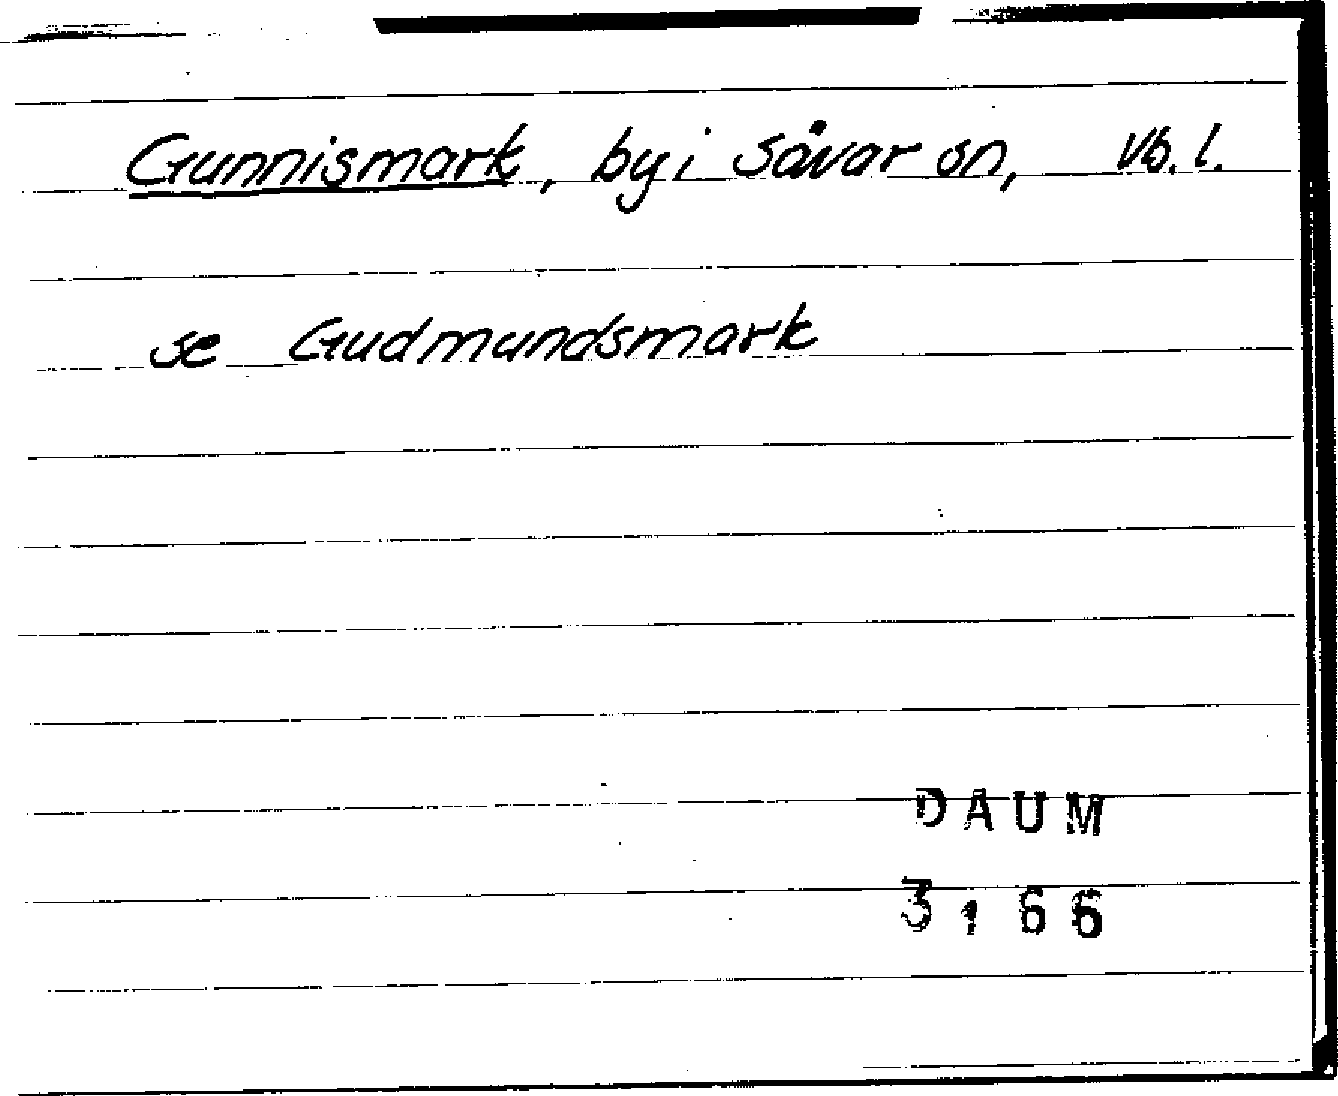 Gunnismark, by i Sävar sn, Vb. l.
se Gudmundsmark
DAUM
3,66